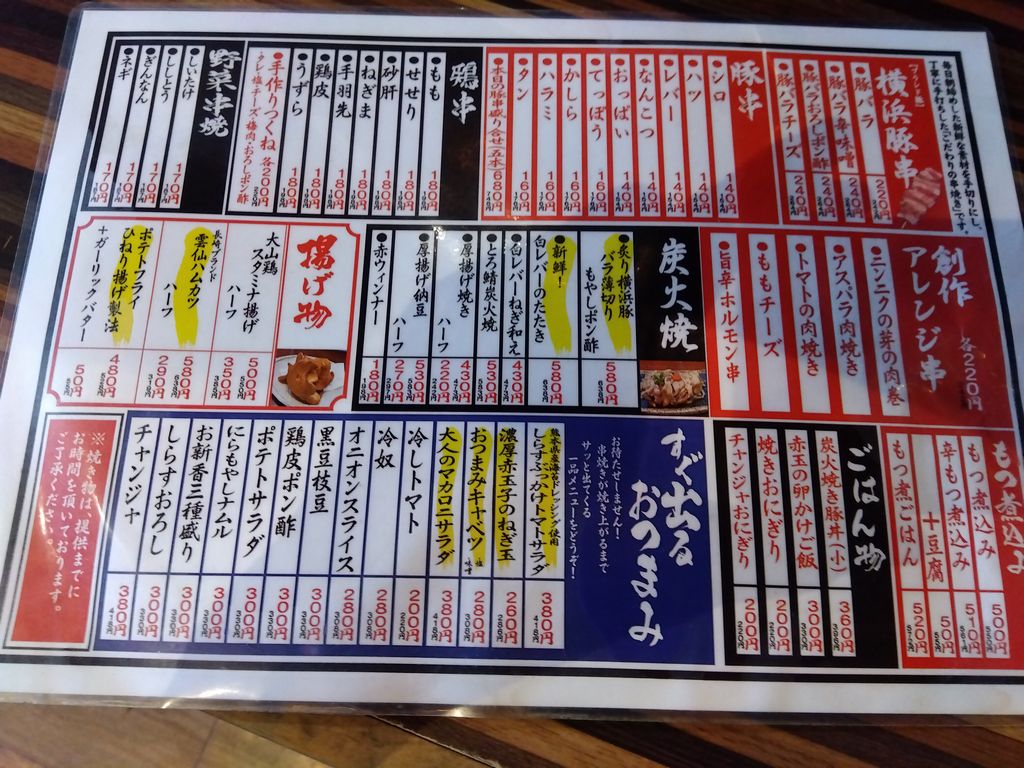 毎日朝締めした新鮮な素材を手切りにし、
丁寧に手打ちした「こだわりの串焼き」です。
横浜豚串
豚バラ 220円
豚バラ辛味噌 240円
豚バラおろしポン酢 240円
豚バラチーズ 240円
豚串
シロ 140円
ハツ 140円
レバー 140円
なんこつ 140円
おっぱい 140円
てっぽう 160円
かしら 160円
ハラミ 160円
タン 160円
本日の豚串盛り合せ「五本」 680円
鶏串
もも 180円
せせり 180円
砂肝 180円
ねぎま 180円
手羽先 180円
鶏皮 180円
うずら 180円
手作りつくね 各200円
・タレ・塩・チーズ・梅肉・おろしポン酢
野菜串焼
しいたけ 170円
ししとう 170円
ぎんなん 170円
ネギ 170円
創作アレンジ串 各220円
ニンニクの芽の肉巻
アスパラ肉焼き
トマトの肉焼き
ももチーズ
旨辛ホルモン串
炭火焼
炙り横浜豚バラ薄切りもやしポン酢 580円
新鮮!白レバーのたたき 580円
白レバーねぎ和え 430円
とろ鯖炭火焼 530円
厚揚げ焼き 430円
ハーフ 220円
厚揚げ納豆 530円
ハーフ 270円
赤ウィンナー 180円
揚げ物
大山鶏スタミナ揚げ 500円
ハーフ 350円
長崎ブランド
雲仙ハムカツ 580円
ハーフ 290円
ポテトフライひねり揚げ製法 480円
+ガーリックバター 50円
もつ煮込み
もつ煮込み 500円
辛もつ煮込み 510円
+豆腐 50円
もつ煮ごはん 520円
ごはん物
炭火焼き豚丼(小) 360円
赤玉の卵かけご飯 300円
焼きおにぎり 200円
チャンジャおにぎり 200円
すぐ出るおつまみ
お待たせしません!
串焼きが焼き上がるまで
サッと出てくる
一品メニューをどうぞ!
熊本県産海苔ドレッシング使用
しらすぶっかけトマトサラダ 380円
濃厚赤玉子のねぎ玉 260円
おつまみキャベツ 塩 味噌 280円
大人のマカロニサラダ 380円
冷しトマト 200円
冷奴 280円
オニオンスライス 280円
黒豆枝豆 300円
鶏皮ポン酢 300円
ポテトサラダ 300円
にらもやしナムル 300円
お新香三種盛り 300円
しらすおろし 380円
チャンジャ 380円
※焼き物は、提供までに
お時間を頂いております。
ご了承ください。